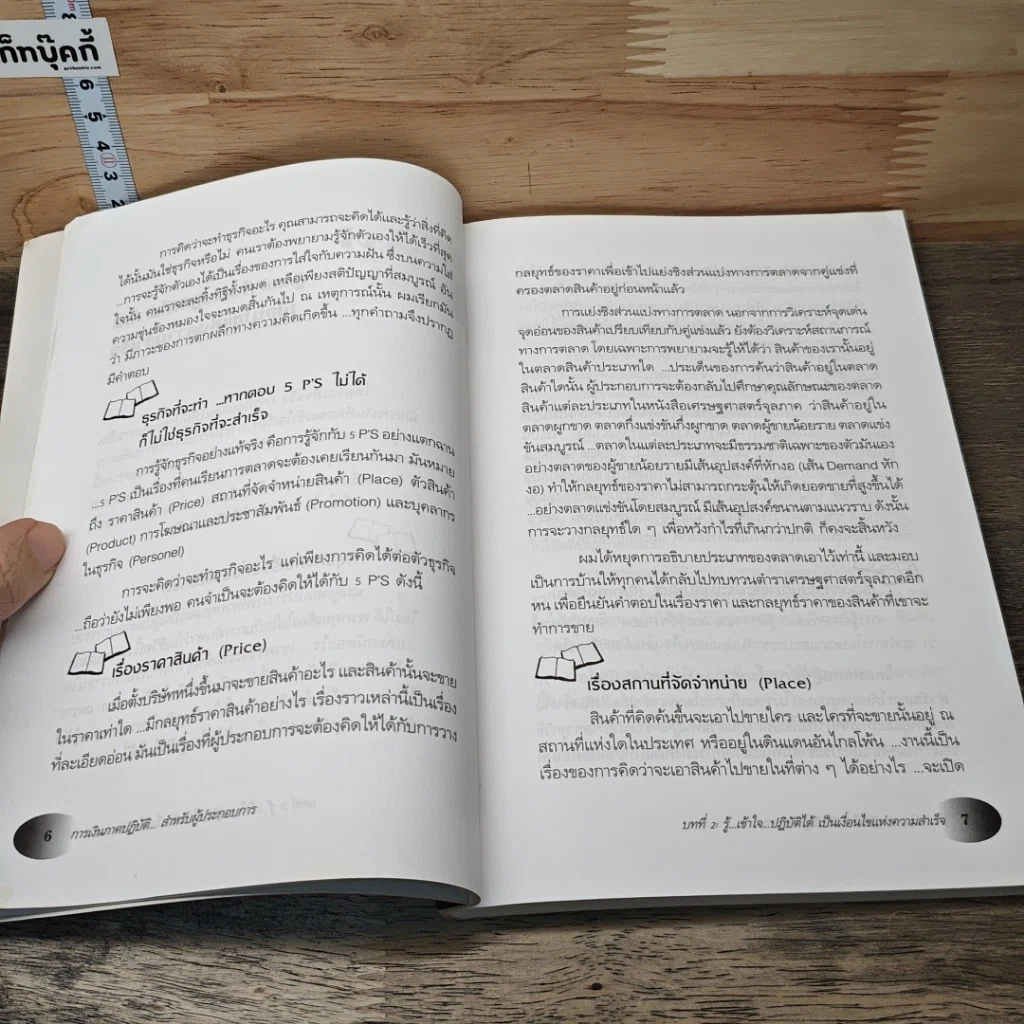 ก็ทบุ๊คกี้
6
5
4
3
2
การคิดว่าจะทำธุรกิจอะไร คุณสามารถจะคิดได้และรู้ว่าสิ่งที่คิด
ได้นั้นมันใช่ธุรกิจหรือไม่ คนเราต้องพยายามรู้จักตัวเองให้ได้เร็วที่สุด
...การจะรู้จักตัวเองได้เป็นเรื่องของการใส่ใจกับความฝัน ซึ่งบนความใส่
ใจนั้น คนเราจะละทิ้งทิฐิทั้งหมด เหลือเพียงสติปัญญาที่สมบูรณ์ อัน
ความขุ่นข้องหมองใจจะหมดสิ้นกันไป ณ เหตุการณ์นั้น ผมเรียกมัน
ว่า มีภาวะของการตกผลึกทางความคิดเกิดขึ้น ...ทุกคำถามจึงปรากฏ
มีคำตอบ
ธุรกิจที่จะทำ ...หากตอบ 5 P'S ไม่ได้
ก็ไม่ใช่ธุรกิจที่จะสำเร็จ
การรู้จักธุรกิจอย่างแท้จริง คือการรู้จักกับ 5 P'S อย่างแตกฉาน
...5 P'S เป็นเรื่องที่คนเรียนการตลาดจะต้องเคยเรียนกันมา มันหมาย
ถึง ราคาสินค้า (Price) สถานที่จัดจำหน่ายสินค้า (Place) ตัวสินค้า
(Product) การโฆษณาและประชาสัมพันธ์ (Promotion) และบุคลากร
ในธุรกิจ (Personel)
การจะคิดว่าจะทำธุรกิจอะไร แค่เพียงการคิดได้ต่อตัวธุรกิจ
...ถือว่ายังไม่เพียงพอ คนจำเป็นจะต้องคิดให้ได้กับ 5 P'S ดังนี้
เรื่องราคาสินค้า (Price)
เมื่อตั้งบริษัทหนึ่งขึ้นมาจะขายสินค้าอะไร และสินค้านั้นจะขาย
ในราคาเท่าใด ...มีกลยุทธ์ราคาสินค้าอย่างไร เรื่องราวเหล่านี้เป็นเรื่อง
ที่ละเอียดอ่อน มันเป็นเรื่องที่ผู้ประกอบการจะต้องคิดให้ได้กับการวาง
6 การเงินภาคปฏิบัติ... สำหรับผู้ประกอบการ
กลยุทธ์ของราคาเพื่อเข้าไปแย่งชิงส่วนแบ่งทางการตลาดจากคู่แข่งที่
ครองตลาดสินค้าอยู่ก่อนหน้าแล้ว
การแย่งชิงส่วนแบ่งทางการตลาด นอกจากการวิเคราะห์จุดเด่น
จุดอ่อนของสินค้าเปรียบเทียบกับคู่แข่งแล้ว ยังต้องวิเคราะห์สถานการณ์
ทางการตลาด โดยเฉพาะการพยายามจะรู้ให้ได้ว่า สินค้าของเรานั้นอยู่
ในตลาดสินค้าประเภทใด ...ประเด็นของการค้นว่าสินค้าอยู่ในตลาด
สินค้าใดนั้น ผู้ประกอบการจะต้องกลับไปศึกษาคุณลักษณะของตลาด
สินค้าแต่ละประเภทในหนังสือเศรษฐศาสตร์จุลภาค ว่าสินค้าอยู่ใน
ตลาดผูกขาด ตลาดกึ่งแข่งขันกึ่งผูกขาด ตลาดผู้ขายน้อยราย ตลาดแข่ง
ขันสมบูรณ์ ...ตลาดในแต่ละประเภทจะมีธรรมชาติเฉพาะของตัวมันเอง
อย่างตลาดของผู้ขายน้อยรายมีเส้นอุปสงค์ที่หักงอ (เส้น Demand หัก
งอ) ทำให้กลยุทธ์ของราคาไม่สามารถกระตุ้นให้เกิดยอดขายที่สูงขึ้นได้
...อย่างตลาดแข่งขันโดยสมบูรณ์ มีเส้นอุปสงค์ขนานตามแนวราบ ดังนั้น
การจะวางกลยุทธ์ใด ๆ เพื่อหวังกำไรที่เกินกว่าปกติ ก็คงจะสิ้นหวัง
ผมได้หยุดการอธิบายประเภทของตลาดเอาไว้เท่านี้ และมอบ
เป็นการบ้านให้ทุกคนได้กลับไปทบทวนตำราเศรษฐศาสตร์จุลภาคอีก
หน เพื่อยืนยันคำตอบในเรื่องราคา และกลยุทธ์ราคาของสินค้าที่เขาจะ
ทำการขาย
เรื่องสถานที่จัดจำหน่าย (Place)
สินค้าที่คิดค้นขึ้นจะเอาไปขายใคร และใครที่จะขายนั้นอยู่ ณ
สถานที่แห่งใดในประเทศ หรืออยู่ในดินแดนอันไกลโพ้น ...งานนี้เป็น
เรื่องของการคิดว่าจะเอาสินค้าไปขายในที่ต่าง ๆ ได้อย่างไร ...จะเปิด
บทที่ 2: รู้...เข้าใจ...ปฏิบัติได้ เป็นเงื่อนไขแห่งความสำเร็จ 7